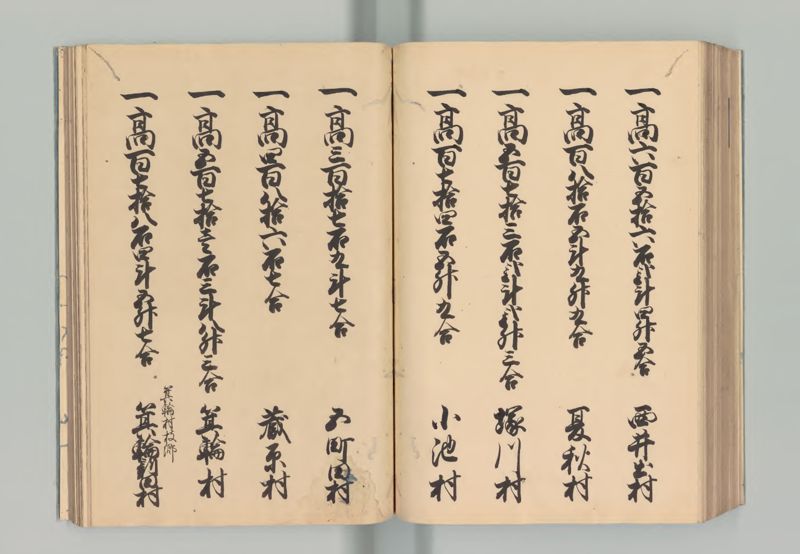 一高六百五拾六石弐斗四升五合 西井出村
一高百八拾石五斗九升九合 夏秋村
一高五百七拾三石弐斗弐升三合 塚川村
一高百七拾四石五升九合 小池村
一高三百拾七石九斗七合 五町田村
一高四百八拾六石七合 蔵原村
一高五百七拾三石三斗八升三合 箕輪村
箕輪村枝郷
一高百七拾八石四斗五升七合 箕輪新田村